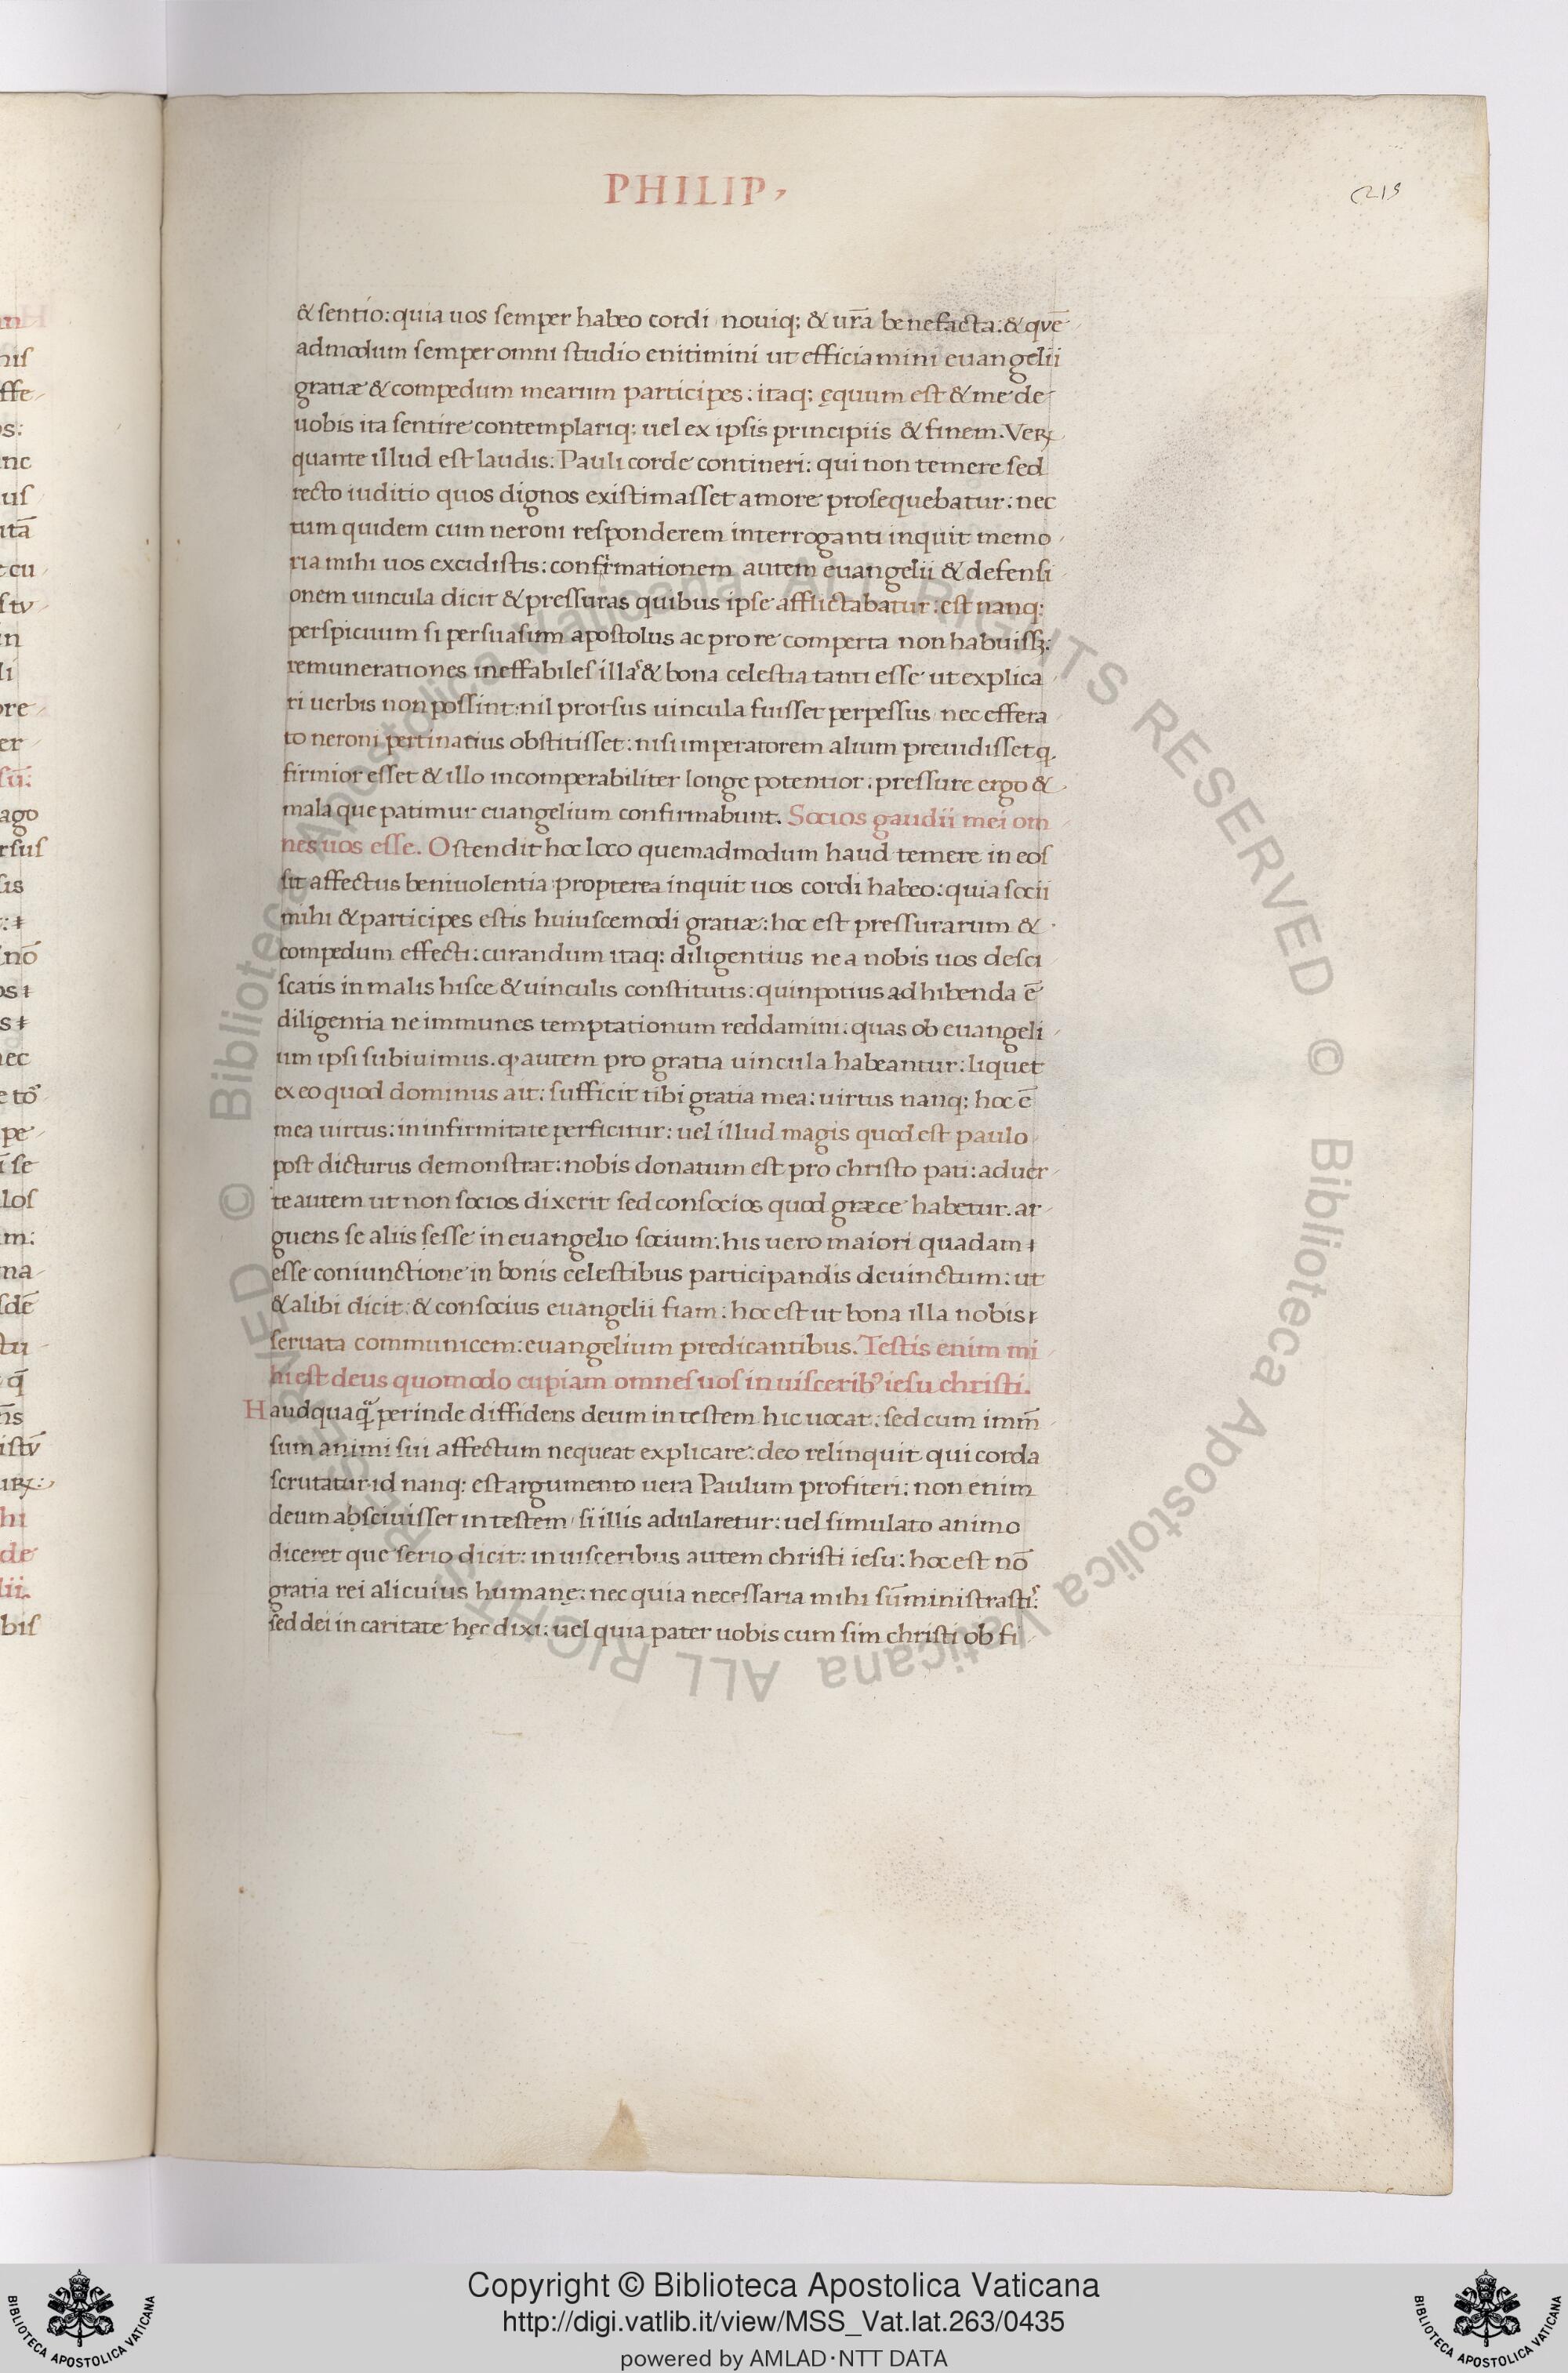 PHILIP,
219
& sentio: quia uos semper habeo cordi nouiq; & ur̄a benefacta: & quē
admodum semper omni studio enitimini ut efficiamini euangelii
gratiæ & compedum mearum participes: itaq; ęquum est & me de
uobis ita sentire contemplariq; uel ex ipsis principiis & finem. Veꝝ
quante illud est laudis: Pauli corde contineri: qui non temere sed
recto iuditio quos dignos existimasset amore prosequebatur: nec
tum quidem cum neroni responderem interroganti inquit memo
ria mihi uos excidistis: confirmationem autem euangelii & defensi
onem uincula dicit & pressuras quibus ipse afflictabatur: est nanq;
perspicuum si persuasum apostolus ac pro re comperta non habuissꝫ:
remunerationes ineffabiles illas & bona celestia tanti esse ut explica
ri uerbis non possint: nil prorsus uincula fuisset perpessus nec effera
to neroni pertinatius obstitisset: nisi imperatorem alium preuidisset q
firmior esset & illo incomperabiliter longe potentior: pressure ergo &
mala que patimur euangelium confirmabunt. Socios gaudii mei om
nes uos esse. Ostendit hoc loco quemadmodum haud temere in eos
sit affectus beniuolentia propterea inquit uos cordi habeo: quia socii
mihi & participes estis huiuscemodi gratiæ: hoc est pressurarum &
compedum effecti: curandum itaq; diligentius ne a nobis uos desci
scatis in malis hisce & uinculis constitutis: quin potius adhibenda ē
diligentia ne immunes temptationum reddamini: quas ob euangeli
um ipsi subiuimus. ꝙ autem pro gratia uincula habeantur: liquet
ex eo quod dominus ait: sufficit tibi gratia mea: uirtus nanq; hoc ē
mea uirtus: in infirmitate perficitur: uel illud magis quod est paulo
post dicturus demonstrat: nobis donatum est pro christo pati: aduer
te autem ut non socios dixerit sed consocios quod græce habetur. ar
guens se aliis sesse in euangelio socium: his uero maiori quadam
esse coniunctione in bonis celestibus participandis deuinctum: ut
& alibi dicit: & consocius euangelii fiam: hoc est ut bona illa nobis
seruata communicem: euangelium predicantibus. Testis enim mi
hi est deus quomodo cupiam omnes uos in uisceribꝰ iesu christi.
Haudquaq̃ perinde diffidens deum in testem hic uocat: sed cum imm̄
sum animi sui affectum nequeat explicare: deo relinquit qui corda
scrutatur id nanq; est argumento uera Paulum profiteri: non enim
deum absciuisset in testem si illis adularetur: uel simulato animo
diceret que serio dicit: in uisceribus autem christi iesu: hoc est nō
gratia rei alicuius humanę: nec quia necessaria mihi sūministrastis:
sed dei in caritate hęc dixi: uel quia pater uobis cum sim christi ob fi
© Biblioteca Apostolica Vaticana ALL RIGHTS RESERVED © Biblioteca Apostolica Vaticana ALL RIGHTS RESERVED
Copyright © Biblioteca Apostolica Vaticana
http://digi.vatlib.it/view/MSS_Vat.lat.263/0435
powered by AMLAD·NTT DATA
BIBLIOTECA APOSTOLICA VATICANA
BIBLIOTECA APOSTOLICA VATICANA